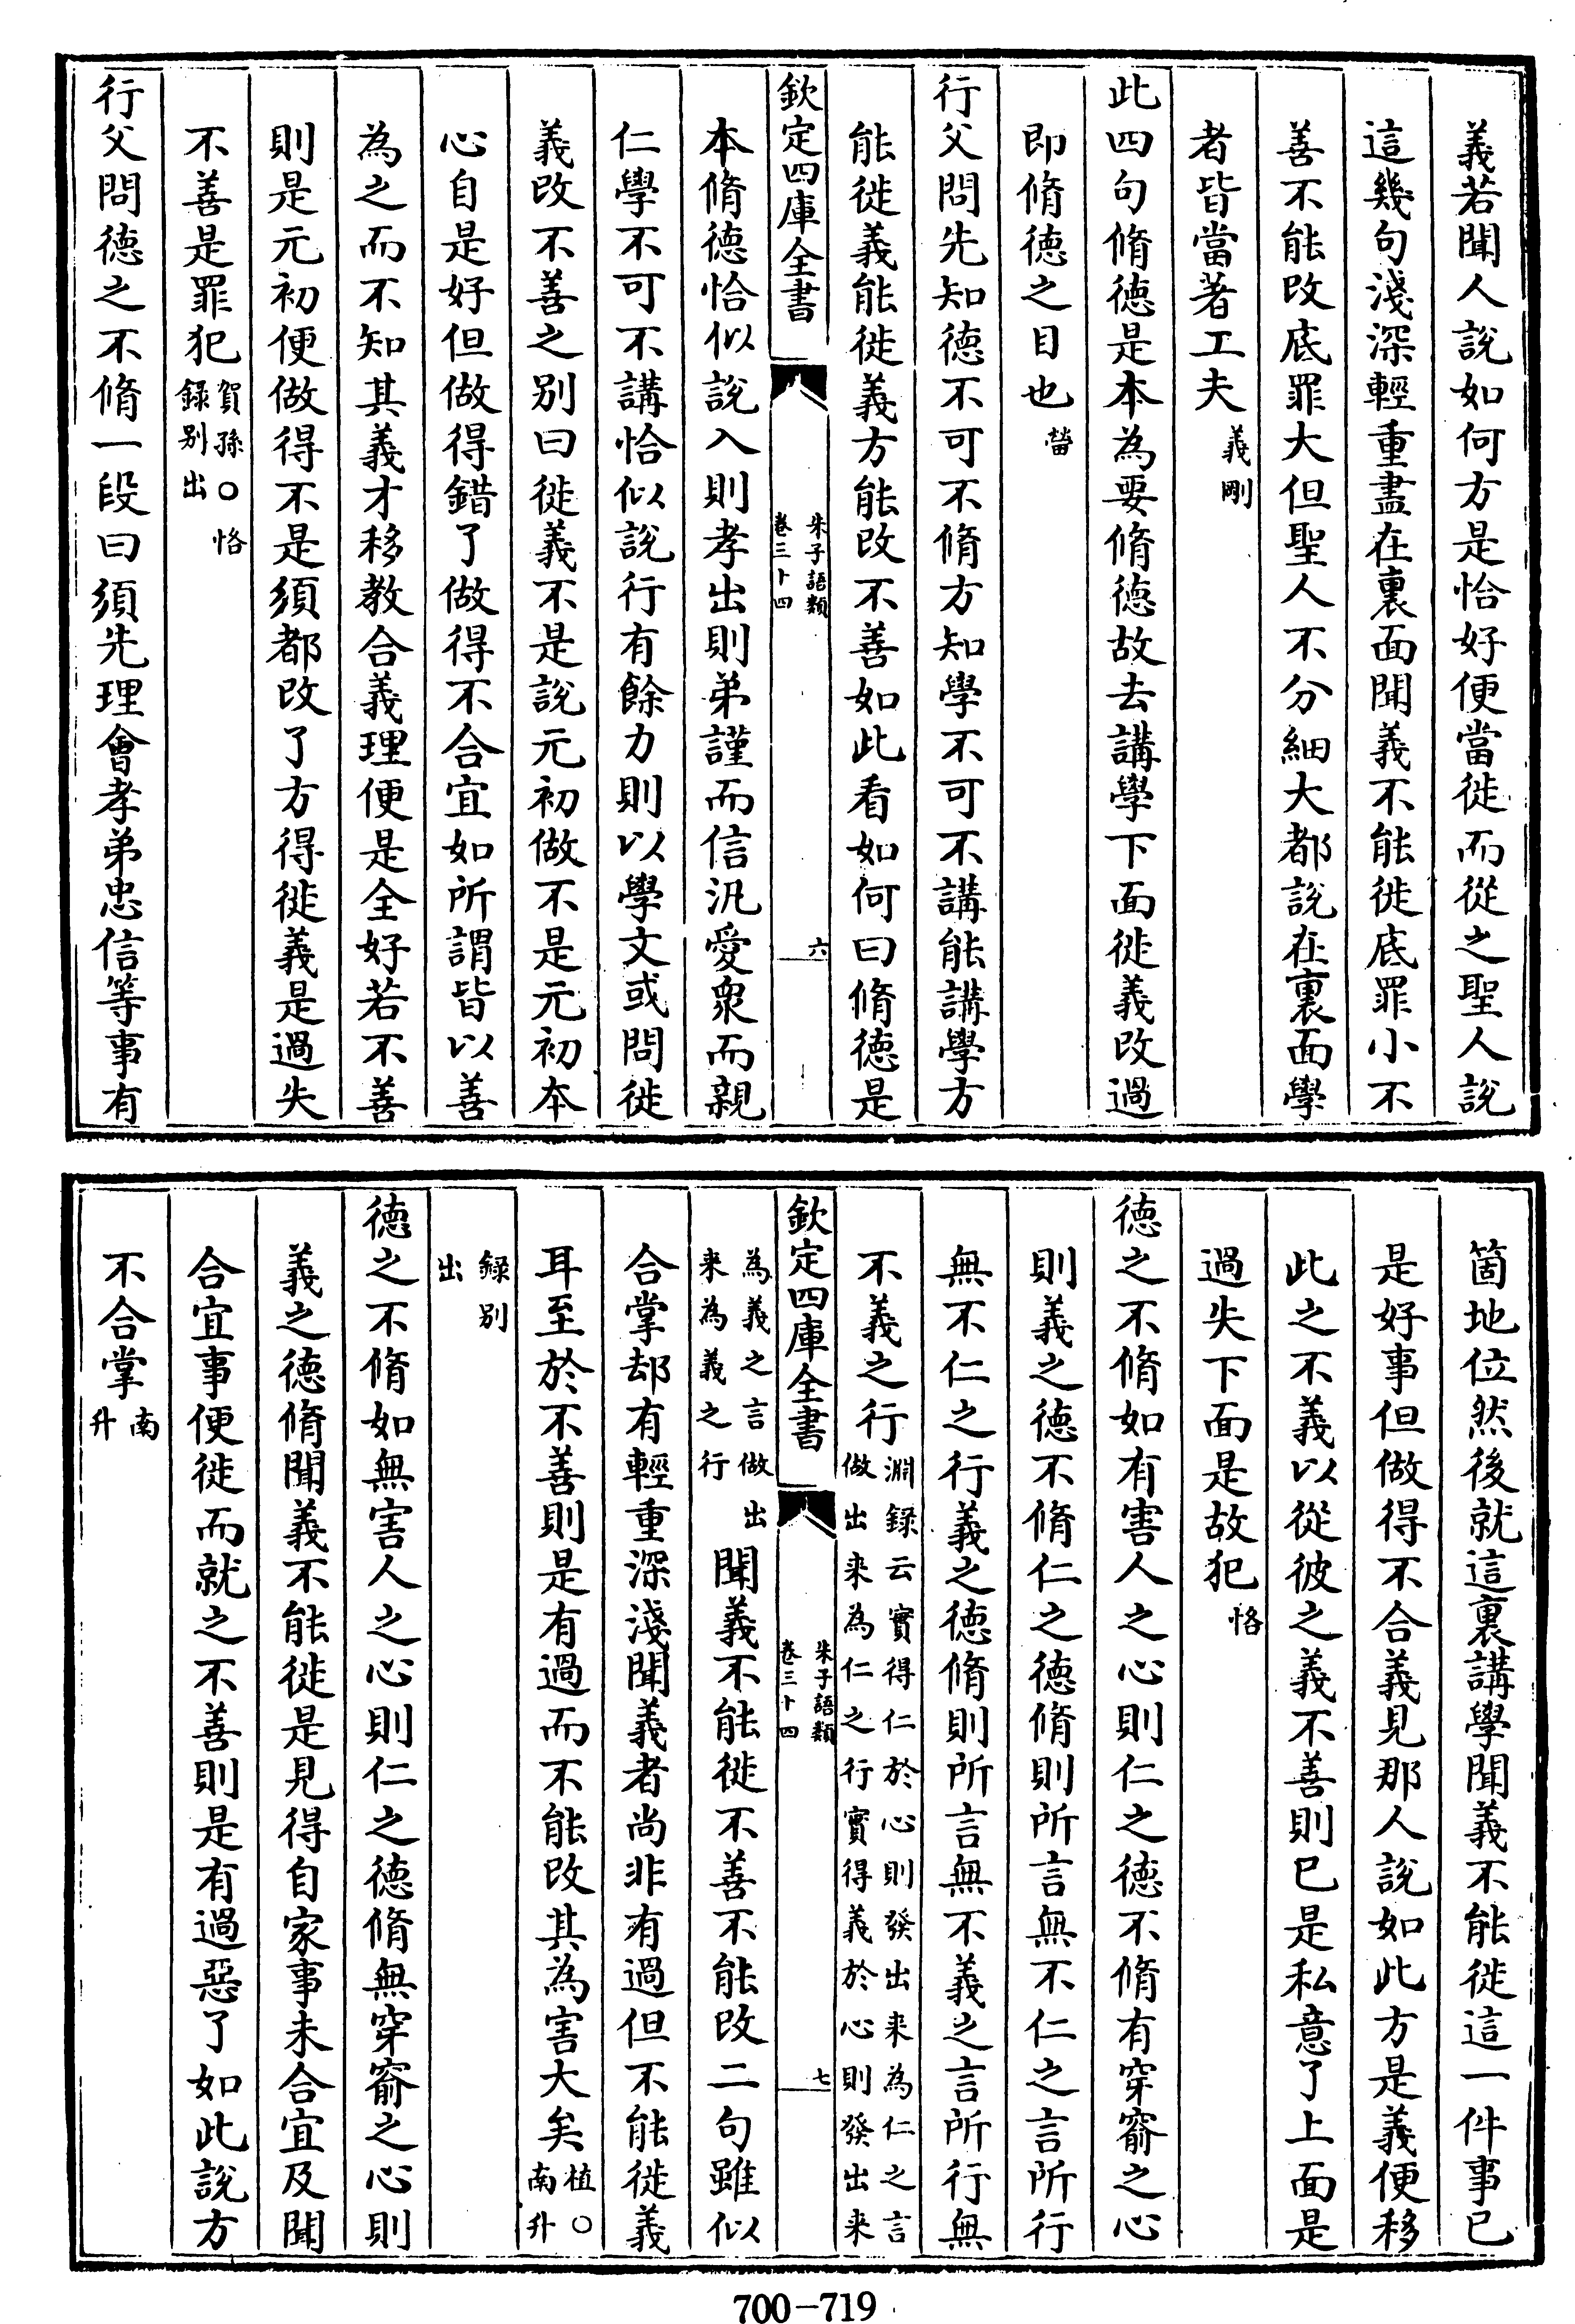 義若聞人說如何方是恰好便當徙而從之聖人說
這幾句淺深輕重盡在裏面聞義不能徙底罪小不
善不能改底罪大但聖人不分細大都說在裏面學
者皆當著工夫義剛
此四句脩德是本為要脩德故去講學下面徙義改過
即脩德之目也㽦
行父問先知德不可不脩方知學不可不講能講學方
能徙義能徙義方能改不善如此看如何曰脩德是
欽定四庫全書
朱子語類
卷三十四
六
本脩德恰似說入則孝出則弟謹而信汎愛衆而親
仁學不可不講恰似說行有餘力則以學文或問徙
義改不善之別曰徙義不是說元初做不是元初本
心自是好但做得錯了做得不合宜如所謂皆以善
為之而不知其義才移教合義理便是全好若不善
則是元初便做得不是須都改了方得徙義是過失
不善是罪犯賀孫○恪
錄別出
行父問德之不脩一段曰須先理會孝弟忠信等事有
箇地位然後就這裏講學聞義不能徙這一件事已
是好事但做得不合義見那人說如此方是義便移
此之不義以從彼之義不善則已是私意了上面是
過失下面是故犯恪
德之不脩如有害人之心則仁之德不脩有穿窬之心
則義之德不脩仁之德脩則所言無不仁之言所行
無不仁之行義之德脩則所言無不義之言所行無
不義之行淵録云實得仁於心則發出来為仁之言
做出来為仁之行實得義於心則發出来
欽定四庫全書
朱子語類
卷三十四
七
為義之言做出
来為義之行
聞義不能徙不善不能改二句雖似
合掌却有輕重深淺聞義者尚非有過但不能徙義
耳至於不善則是有過而不能改其為害大矣植○
南升
録別
出
德之不脩如無害人之心則仁之德脩無穿窬之心則
義之德脩聞義不能徙是見得自家事未合宜及聞
合宜事便徙而就之不善則是有過惡了如此說方
不合掌南
升
700-719